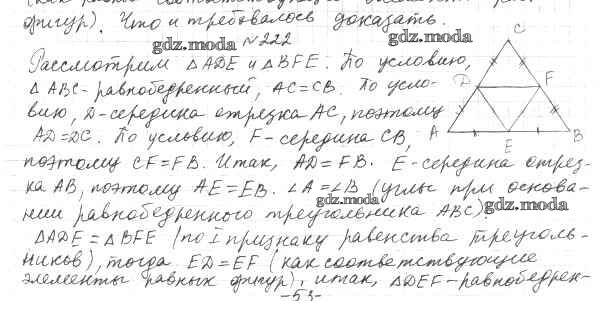 фигур). Что и требовалось доказать.
gdz.moda №222 gdz.moda
Рассмотрим ΔADE и ΔBFE. По условию,
ΔABC-равнобедренный, AC=CB. По усло-
вию, D-середина отрезка AC, поэтому
AD=DC. По условию, F-середина CB,
поэтому CF=FB. Итак, AD=FB. E-середина отрез-
ка AB, поэтому AE=EB. ∠A=∠B (углы при основа-
gdz.moda
нии равнобедренного треугольника ABC) gdz.moda
ΔADE=ΔBFE (по I признаку равенства треуголь-
ников), тогда ED=EF (как соответствующие
элементы равных фигур), итак, ΔDEF-равнобедрен-
-53-
C
D
F
A
E
B